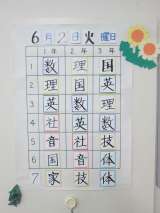 6月2日火曜日
1年 2年 3年
1 数 理 国
2 理 国 英
3 英 数 理
4 社 英 数
5 音 社 技
6 国 音 体
7 家 技 体